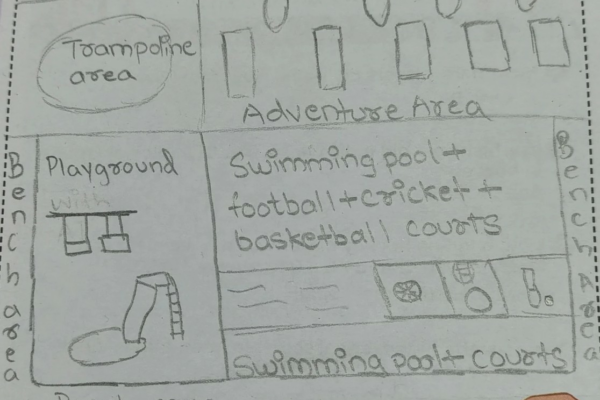 Trampoline
area
Adventure Area
Bench area
Playground
with
Swimming pool+
football+cricket+
basketball courts
Bench Area
Swimming pool+ courts